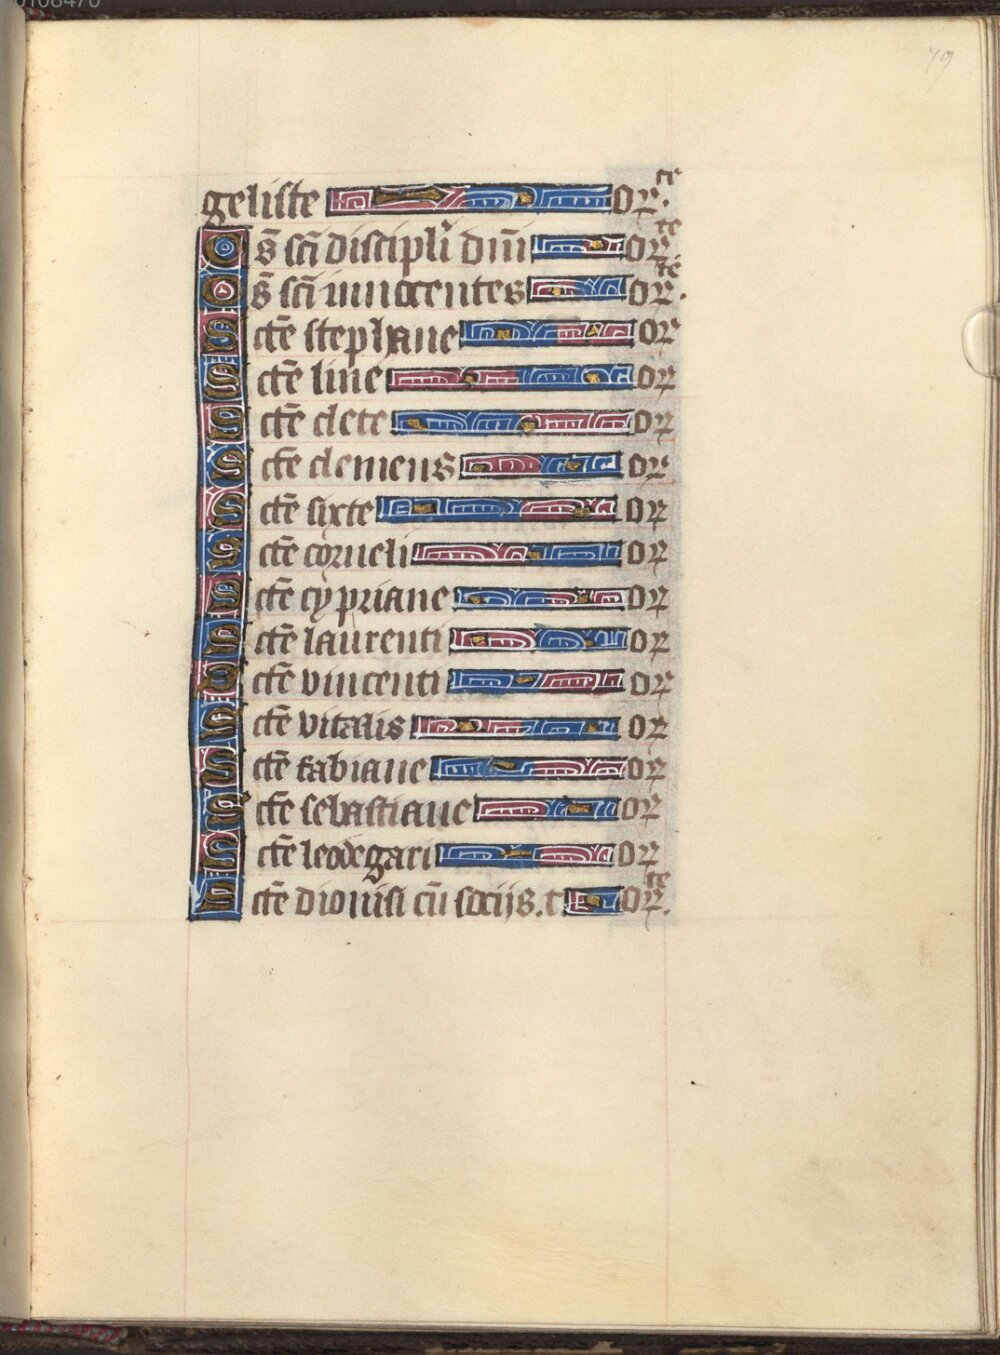 79
geliste orate.
Os̄ sc̄i discipli dn̄i orate
Os̄ sc̄i innocentes orate.
Sctē stephane or
Sctē line or
Sctē clete or
Sctē clemens or
Sctē sixte or
Sctē corneli or
Sctē cypriane or
Sctē laurenti or
Sctē vincenti or
Sctē vitalis or
Sctē fabiane or
Sctē sebastiane or
Sctē leodegari or
Sctē dionisi cū sociis.t. orate.